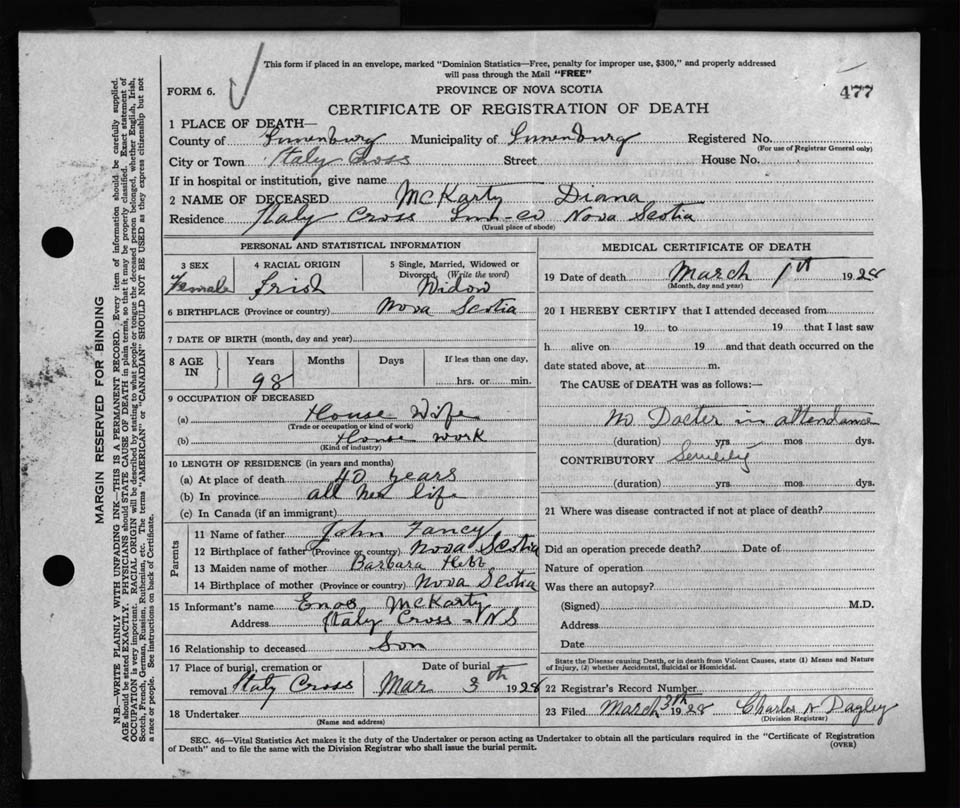 This form if placed in an envelope, marked "Dominion Statistics—Free, penalty for improper use, $300," and properly addressed
will pass through the Mail "FREE"
FORM 6.
PROVINCE OF NOVA SCOTIA
477
CERTIFICATE OF REGISTRATION OF DEATH
1 PLACE OF DEATH—
County of Lunenburg Municipality of Lunenburg Registered No.
(For use of Registrar General only)
City or Town Italy Cross Street House No.
If in hospital or institution, give name
2 NAME OF DECEASED McKarty Diana
Residence Italy Cross Lun-co Nova Scotia
(Usual place of abode)
PERSONAL AND STATISTICAL INFORMATION
3 SEX 4 RACIAL ORIGIN 5 Single, Married, Widowed or
Divorced (Write the word)
Female Irish Widow
6 BIRTHPLACE (Province or country) Nova Scotia
7 DATE OF BIRTH (month, day and year)
8 AGE IN Years Months Days If less than one day,
98 hrs. or min.
9 OCCUPATION OF DECEASED
(a) House Wife
(Trade or occupation or kind of work)
(b) House work
(Kind of industry)
10 LENGTH OF RESIDENCE (in years and months)
(a) At place of death 40 years
(b) In province all her life
(c) In Canada (if an immigrant)
Parents
11 Name of father John Fancy
12 Birthplace of father (Province or country) Nova Scotia
13 Maiden name of mother Barbara Hebb
14 Birthplace of mother (Province or country) Nova Scotia
15 Informant's name Enos McKarty
Address Italy Cross - NS
16 Relationship to deceased Son
17 Place of burial, cremation or Date of burial
removal Italy Cross Mar 3th 1928
18 Undertaker
(Name and address)
MEDICAL CERTIFICATE OF DEATH
19 Date of death March 1th 1928
(Month, day and year)
20 I HEREBY CERTIFY that I attended deceased from
19 to 19 that I last saw
h alive on 19 and that death occurred on the
date stated above, at m.
The CAUSE of DEATH was as follows:—
No Docter in attendance
(duration) yrs. mos. dys.
CONTRIBUTORY
(duration) yrs. mos. dys.
21 Where was disease contracted if not at place of death?
Did an operation precede death? Date of
Nature of operation
Was there an autopsy?
(Signed) M.D.
Address
Date
State the Disease causing Death, or in death from Violent Causes, state (1) Means and Nature
of Injury, (2) whether Accidental, Suicidal or Homicidal.
22 Registrar's Record Number
23 Filed March 3th 1928 Charles A Dagley
(Division Registrar)
SEC. 46—Vital Statistics Act makes it the duty of the Undertaker or person acting as Undertaker to obtain all the particulars required in the "Certificate of Registration
of Death" and to file the same with the Division Registrar who shall issue the burial permit.
(OVER)
MARGIN RESERVED FOR BINDING
N.B.—WRITE PLAINLY WITH UNFADING INK—THIS IS A PERMANENT RECORD. Every item of information should be carefully supplied.
AGE should be stated EXACTLY. PHYSICIANS should STATE CAUSE OF DEATH in plain terms, so that it may be properly classified. Exact statement of
OCCUPATION is very important. RACIAL ORIGIN will be described by stating to what people or tongue the deceased person belonged, whether English, Irish,
Scotch, French, German, Russian, Ruthenian, etc. The terms "AMERICAN" or "CANADIAN" SHOULD NOT BE USED as they express citizenship but not
a race or people. See instructions on back of Certificate.